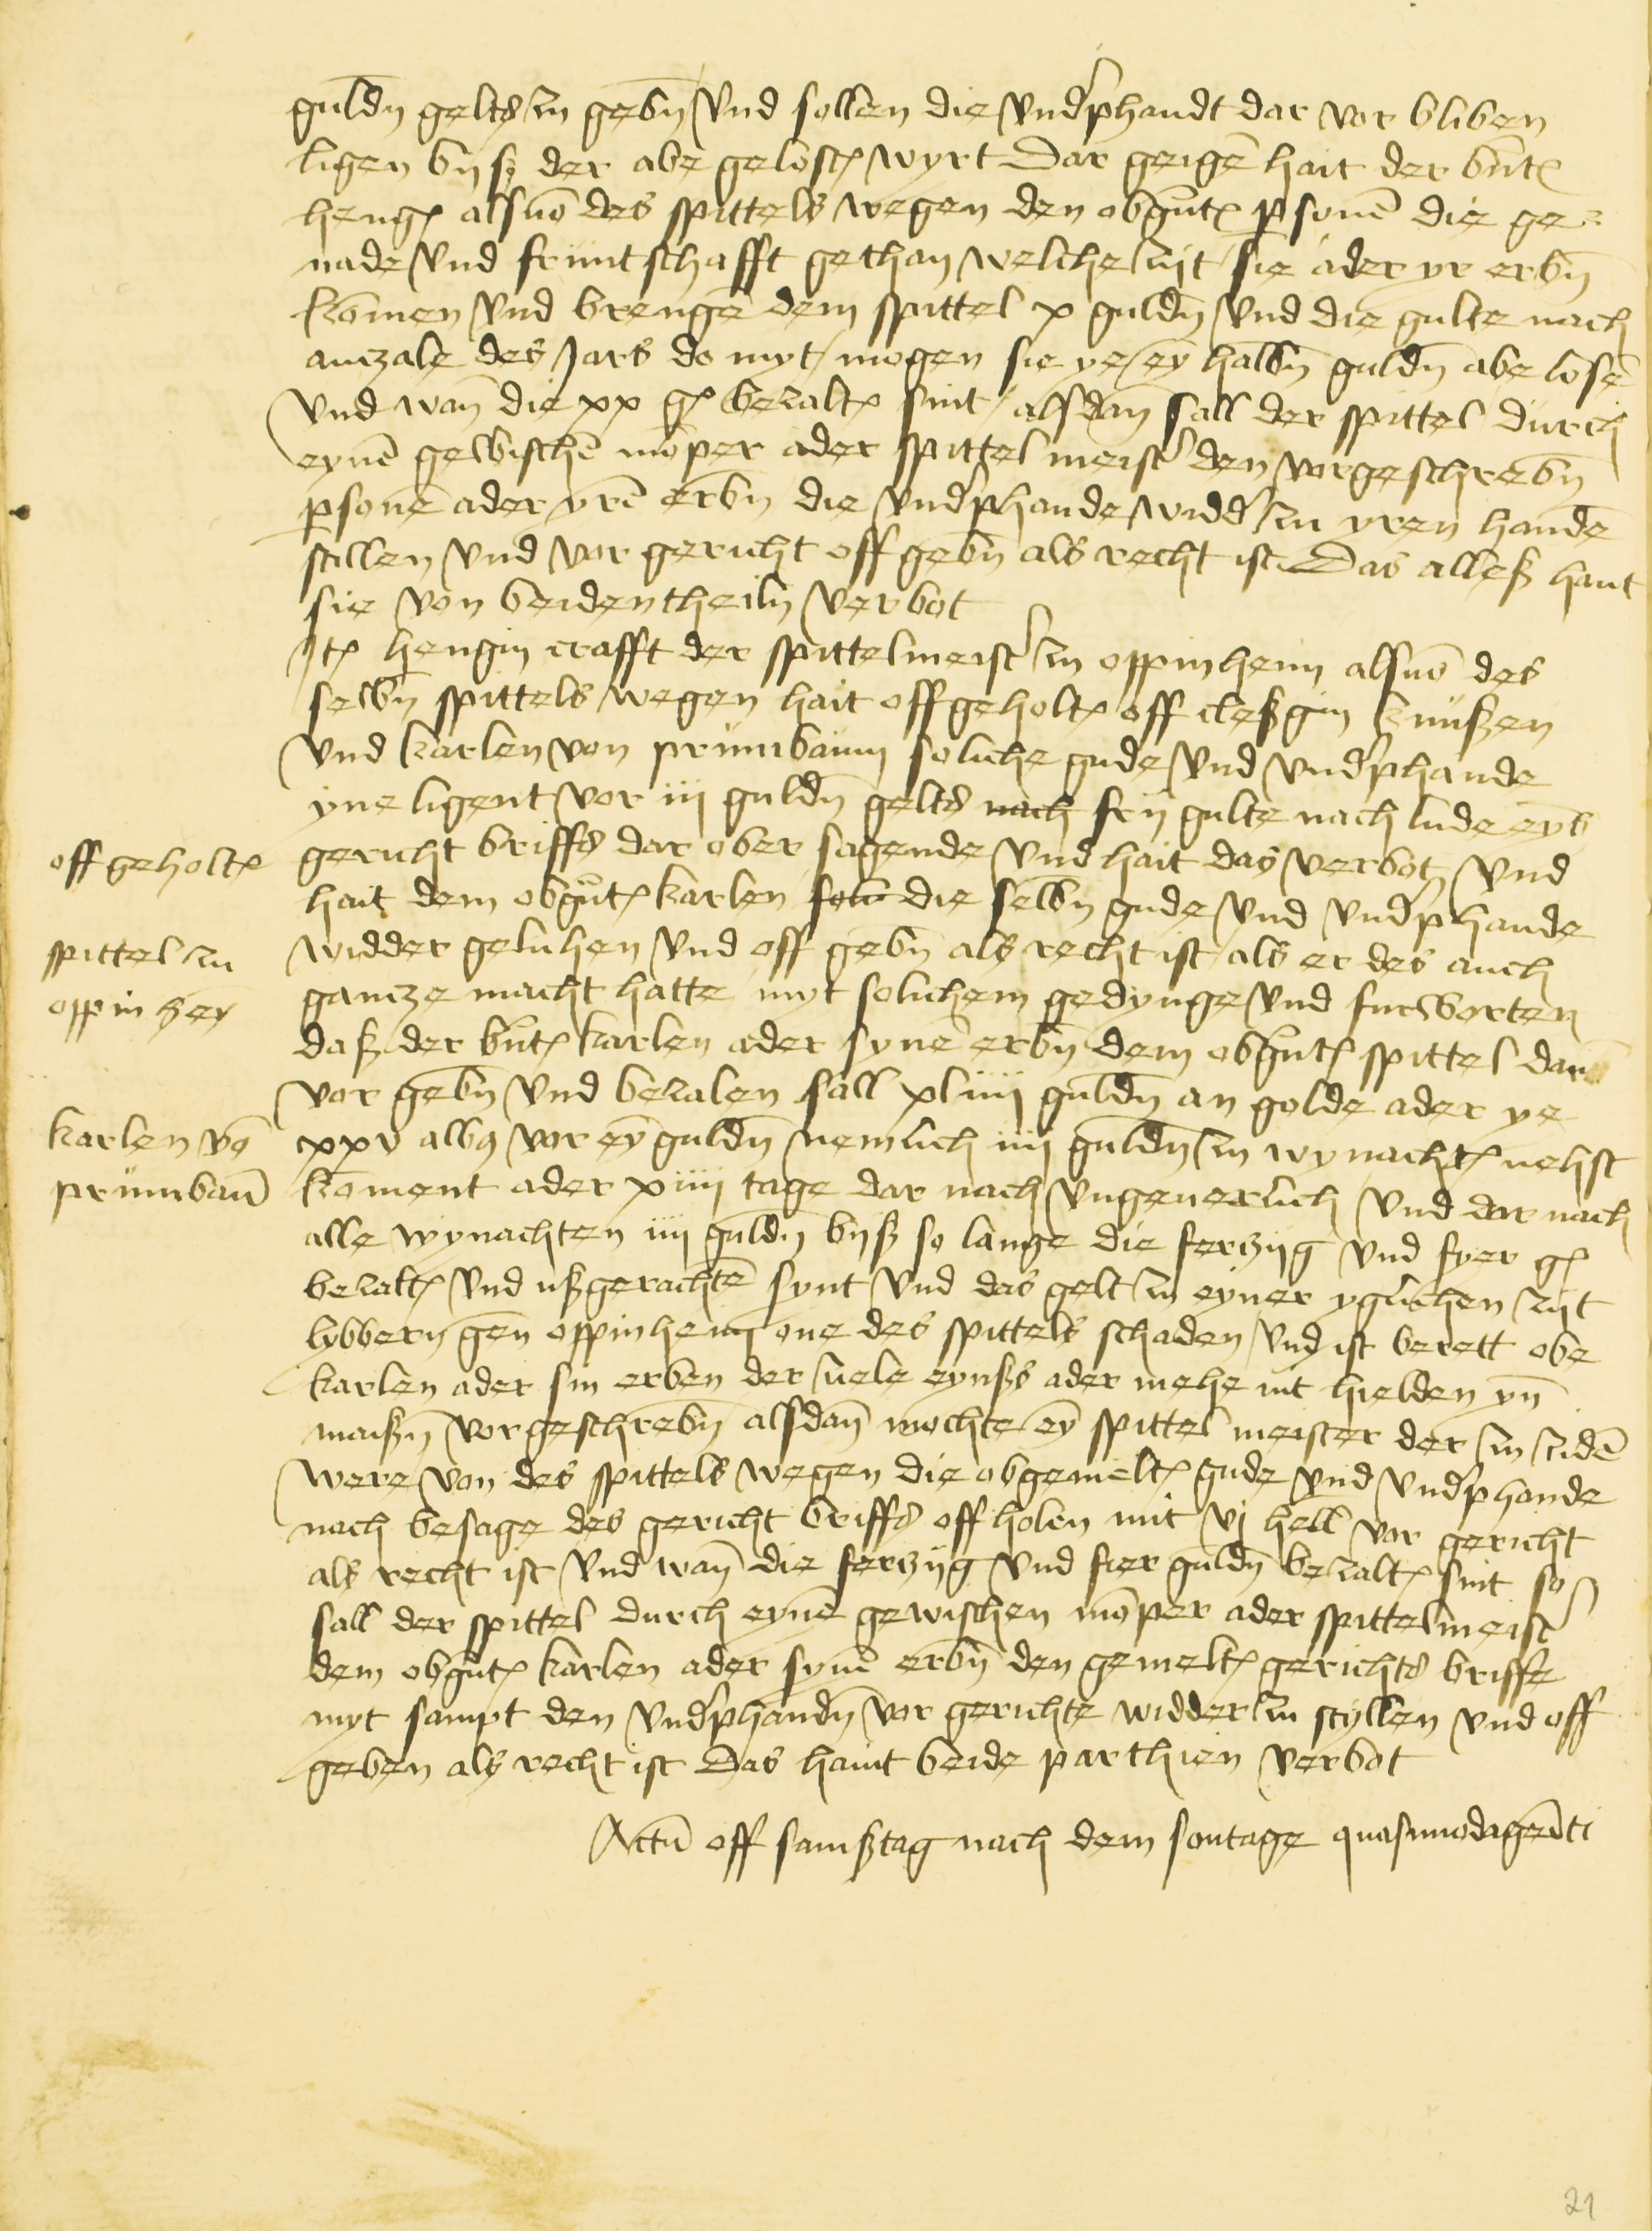 guldñ gelts zu gebñ vnd sollen die vnd'phandt dar vor bliben
ligen byß der abe geloist wyrt Dar geigē hait der bnt
heng alsuō des spittels wegen den obgnt psonē die ge-
nade vnd früntschafft gethan welche zijt sie ader yr erbñ
komen vnd brengē dem spittel x guldñ vnd die gulte nach
anczale des Jars do myt mogen sie ye ey halbñ guldñ abe losē
vnd wañ die xx g bezalt sint alsdañ sall der spittel durch
eynē gewischē mōper ader spittel meist' den vorgeschrebñ
psonē ader yrē erbñ die vnd'phande widd' zu yren handē
stillen vnd vor gericht off gebñ als recht ist Das alleß hant
sie von beiden theiln verbot
Jt hengin crafft der spittelmeist' zu oppinheim alsuō des
selbñ spittels wegen hait offgeholt off cleßgin knüßen
vnd karlen von prümbaum soliche gude vnd vnd'phande
yne ligent vor iij guldñ gelts nach frij gulte nach lude eyß
gericht briffs dar ober sagende vnd hait das verbot vnd
hait dem obgnt karlen die selbñ gude vnd vnd'phande
widder geluhen vnd off gebñ als recht ist als er des auch
gancze macht hatte myt solichem gedynge vnd furworten
daß der bnt karlen ader synē erbñ dem obgnt spittel dar
vor gebñ vnd bezalen sall xliiij guldñ an golde ader ye
xxv alb9 vor ey guldñ nemlich iiij guldñ zu wynacht nehst
koment ader xiiij tage dar nach vngeuerlich vnd dar nach
alle wynachten iiij guldñ byß so lange die ferczijg vnd fyer g
bezalt vnd ußgerachtē synt vnd das gelt zu eyner yglichen zijt
lybbern gen oppinheim one des spittels schaden vnd ist berett obe
karlen ader sin erben der ziele eynßs ader mehe nit hielden yn
maißn vorgeschrebñ alsdañ mochte ey spittel meister der zu zidē
were von des spittels wegen die obgemelt gude vnd vnd'phande
nach besage des gericht briffs off holen mit vj hell vor gericht
als recht ist vnd wañ die ferczijg vnd fier guldñ bezalt sint so
sall der spittel durch eynē gewischen mōper ader spittelmeist'
dem obgnt karlen ader synē erbñ den gemelt gerichts briffe
myt sampt den vnd'phandñ vor gerichte widder zu styllen vnd off
geben als recht ist Das haint beide parthien verbot
Actū off samßtag nach dem sontage quasimodagēiti
off geholt
spittel zu
oppinhey
karlen vō
prümbaū
21